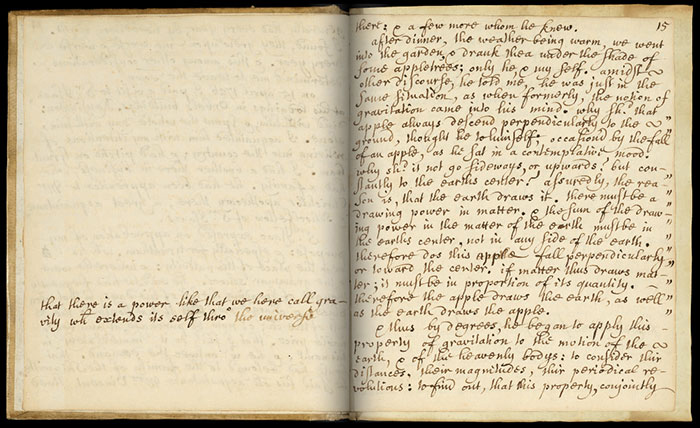 that there is a power like that we here call gra-
vity wh extends its self thro' the universe
15
there: & a few more whom he knew.
after dinner, the weather being warm, we went
into the garden, & drank thea under the shade of
some appletrees; only he, & my self. amidst
other discourse, he told me, he was just in the
same situation, as when formerly, the notion of
gravitation came into his mind. "why sh.d that
apple always descend perpendicularly to the "
ground, thought he to himself: occasion'd by the fall
of an apple, as he sat in a contemplative mood. "
"why sh.d it not go sideways, or upwards? but con-
"stantly to the earths center? assuredly, the rea- "
son is, that the earth draws it. there must be a "
drawing power in matter. & the sum of the draw- "
ing power in the matter of the earth must be in "
the earths center, not in any side of the earth. "
therefore dos this apple fall perpendicularly "
or toward the center. if matter thus draws mat- "
ter; it must be in proportion of its quantity. "
therefore the apple draws the earth, as well "
as the earth draws the apple. "
& thus by degrees, he began to apply this
property of gravitation to the motion of the
earth, & of the heavenly bodys: to consider thir
distances, their magnitudes, thir periodical re-
volutions: to find out, that this property, conjointly